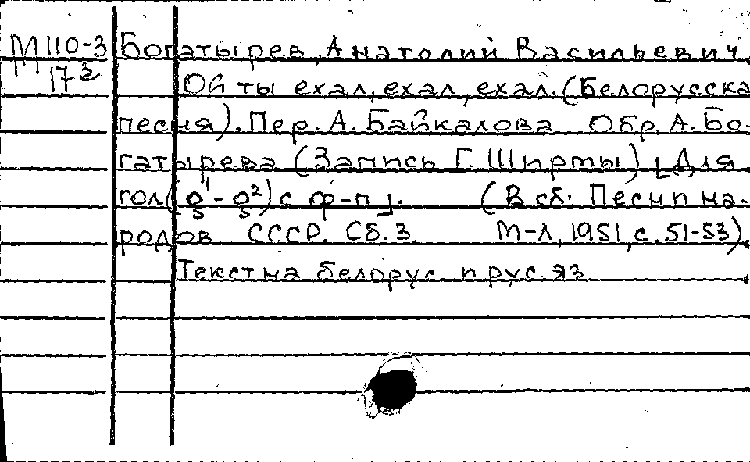 М 110-3 Богатырев, Анатолий Васильевич
173 Ой ты ехал, ехал, ехал. (Белорусска
песня). Пер. А. Байкалова Обр. А. Бо-
гатырева (Запись Г. Ширмы) [Для
гол( g¹ - g²) с ф-п]. (В сб: Песни на-
родов СССР. Сб. 3. М-Л, 1951, с. 51-53).
Текст на белорус. и рус. яз